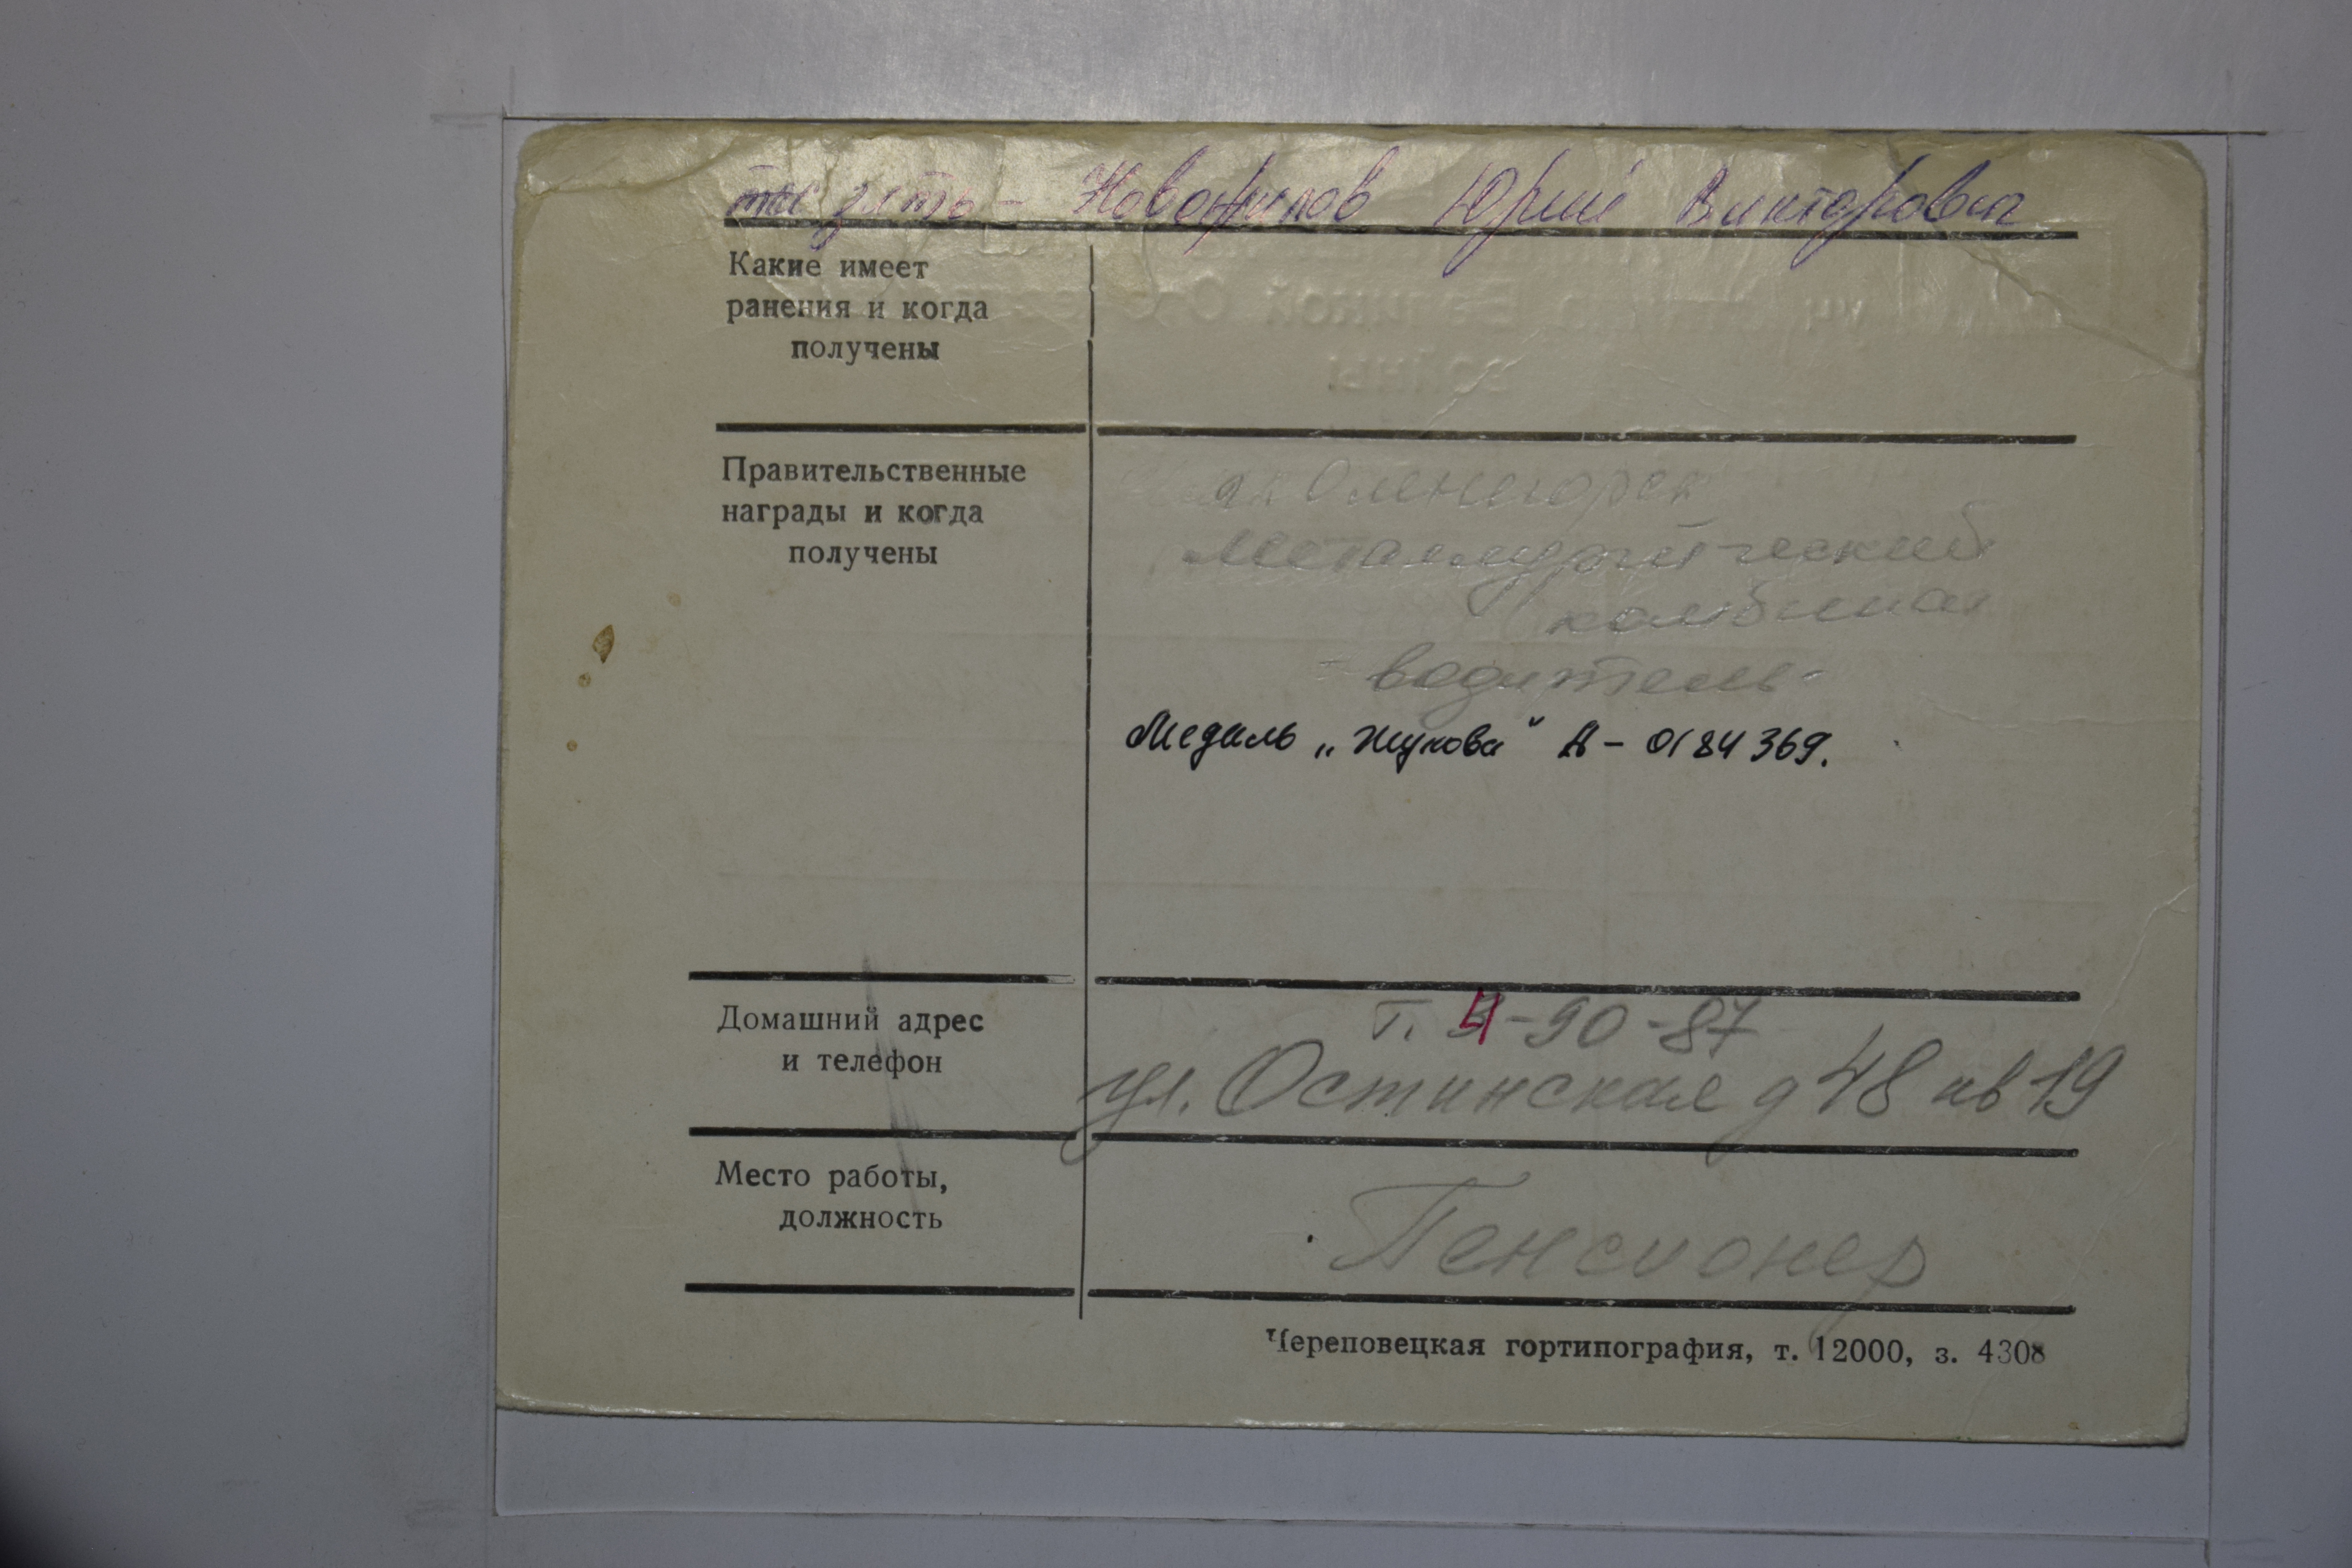 зять - Новожилов Юрий Викторович
Какие имеет
ранения и когда
получены
Правительственные
награды и когда
получены
Оленегорск
металлургический
комбинат
- водитель -
Медаль „Жукова" А - 0184369.
Домашний адрес
и телефон
т. 4-90-87
ул. Остинская д 48 кв 19
Место работы,
должность
Пенсионер
Череповецкая гортипография, т. 12000, з. 4308